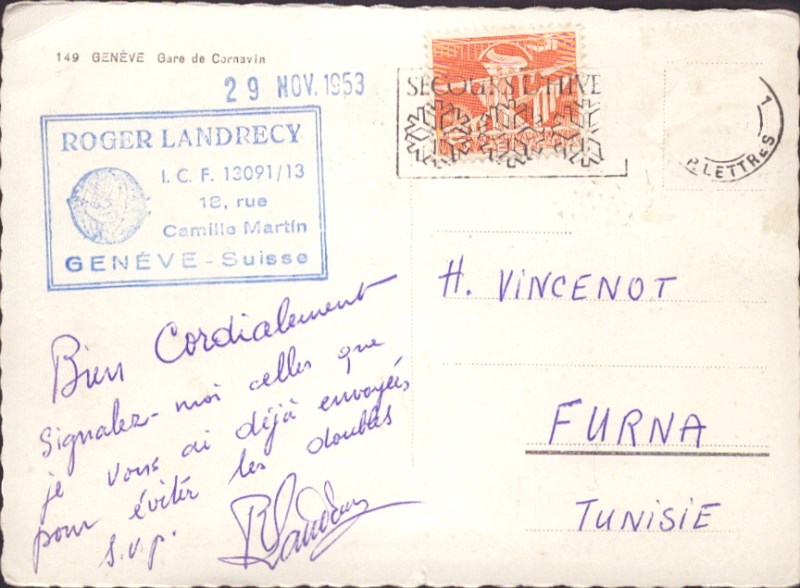 149 GENÈVE Gare de Cornavin
29 NOV. 1953
ROGER LANDRECY
I. C. F. 13091/13
18, rue
Camille Martin
GENÉVE - Suisse
SECOURS D'HIVE
LETTRES
1
H. VINCENOT
FURNA
TUNISIE
Bien Cordialement
Signalez-moi celles que
je vous ai déjà envoyées
pour éviter les doubles
s.v.p.